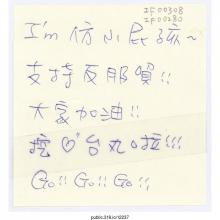 IF00308
IF00280
I'm 仿小民孩~
支持反服貿!!
大家加油!!
挖♡台丸啦!!!
Go!! Go!! Go!!
public.318.io/12237